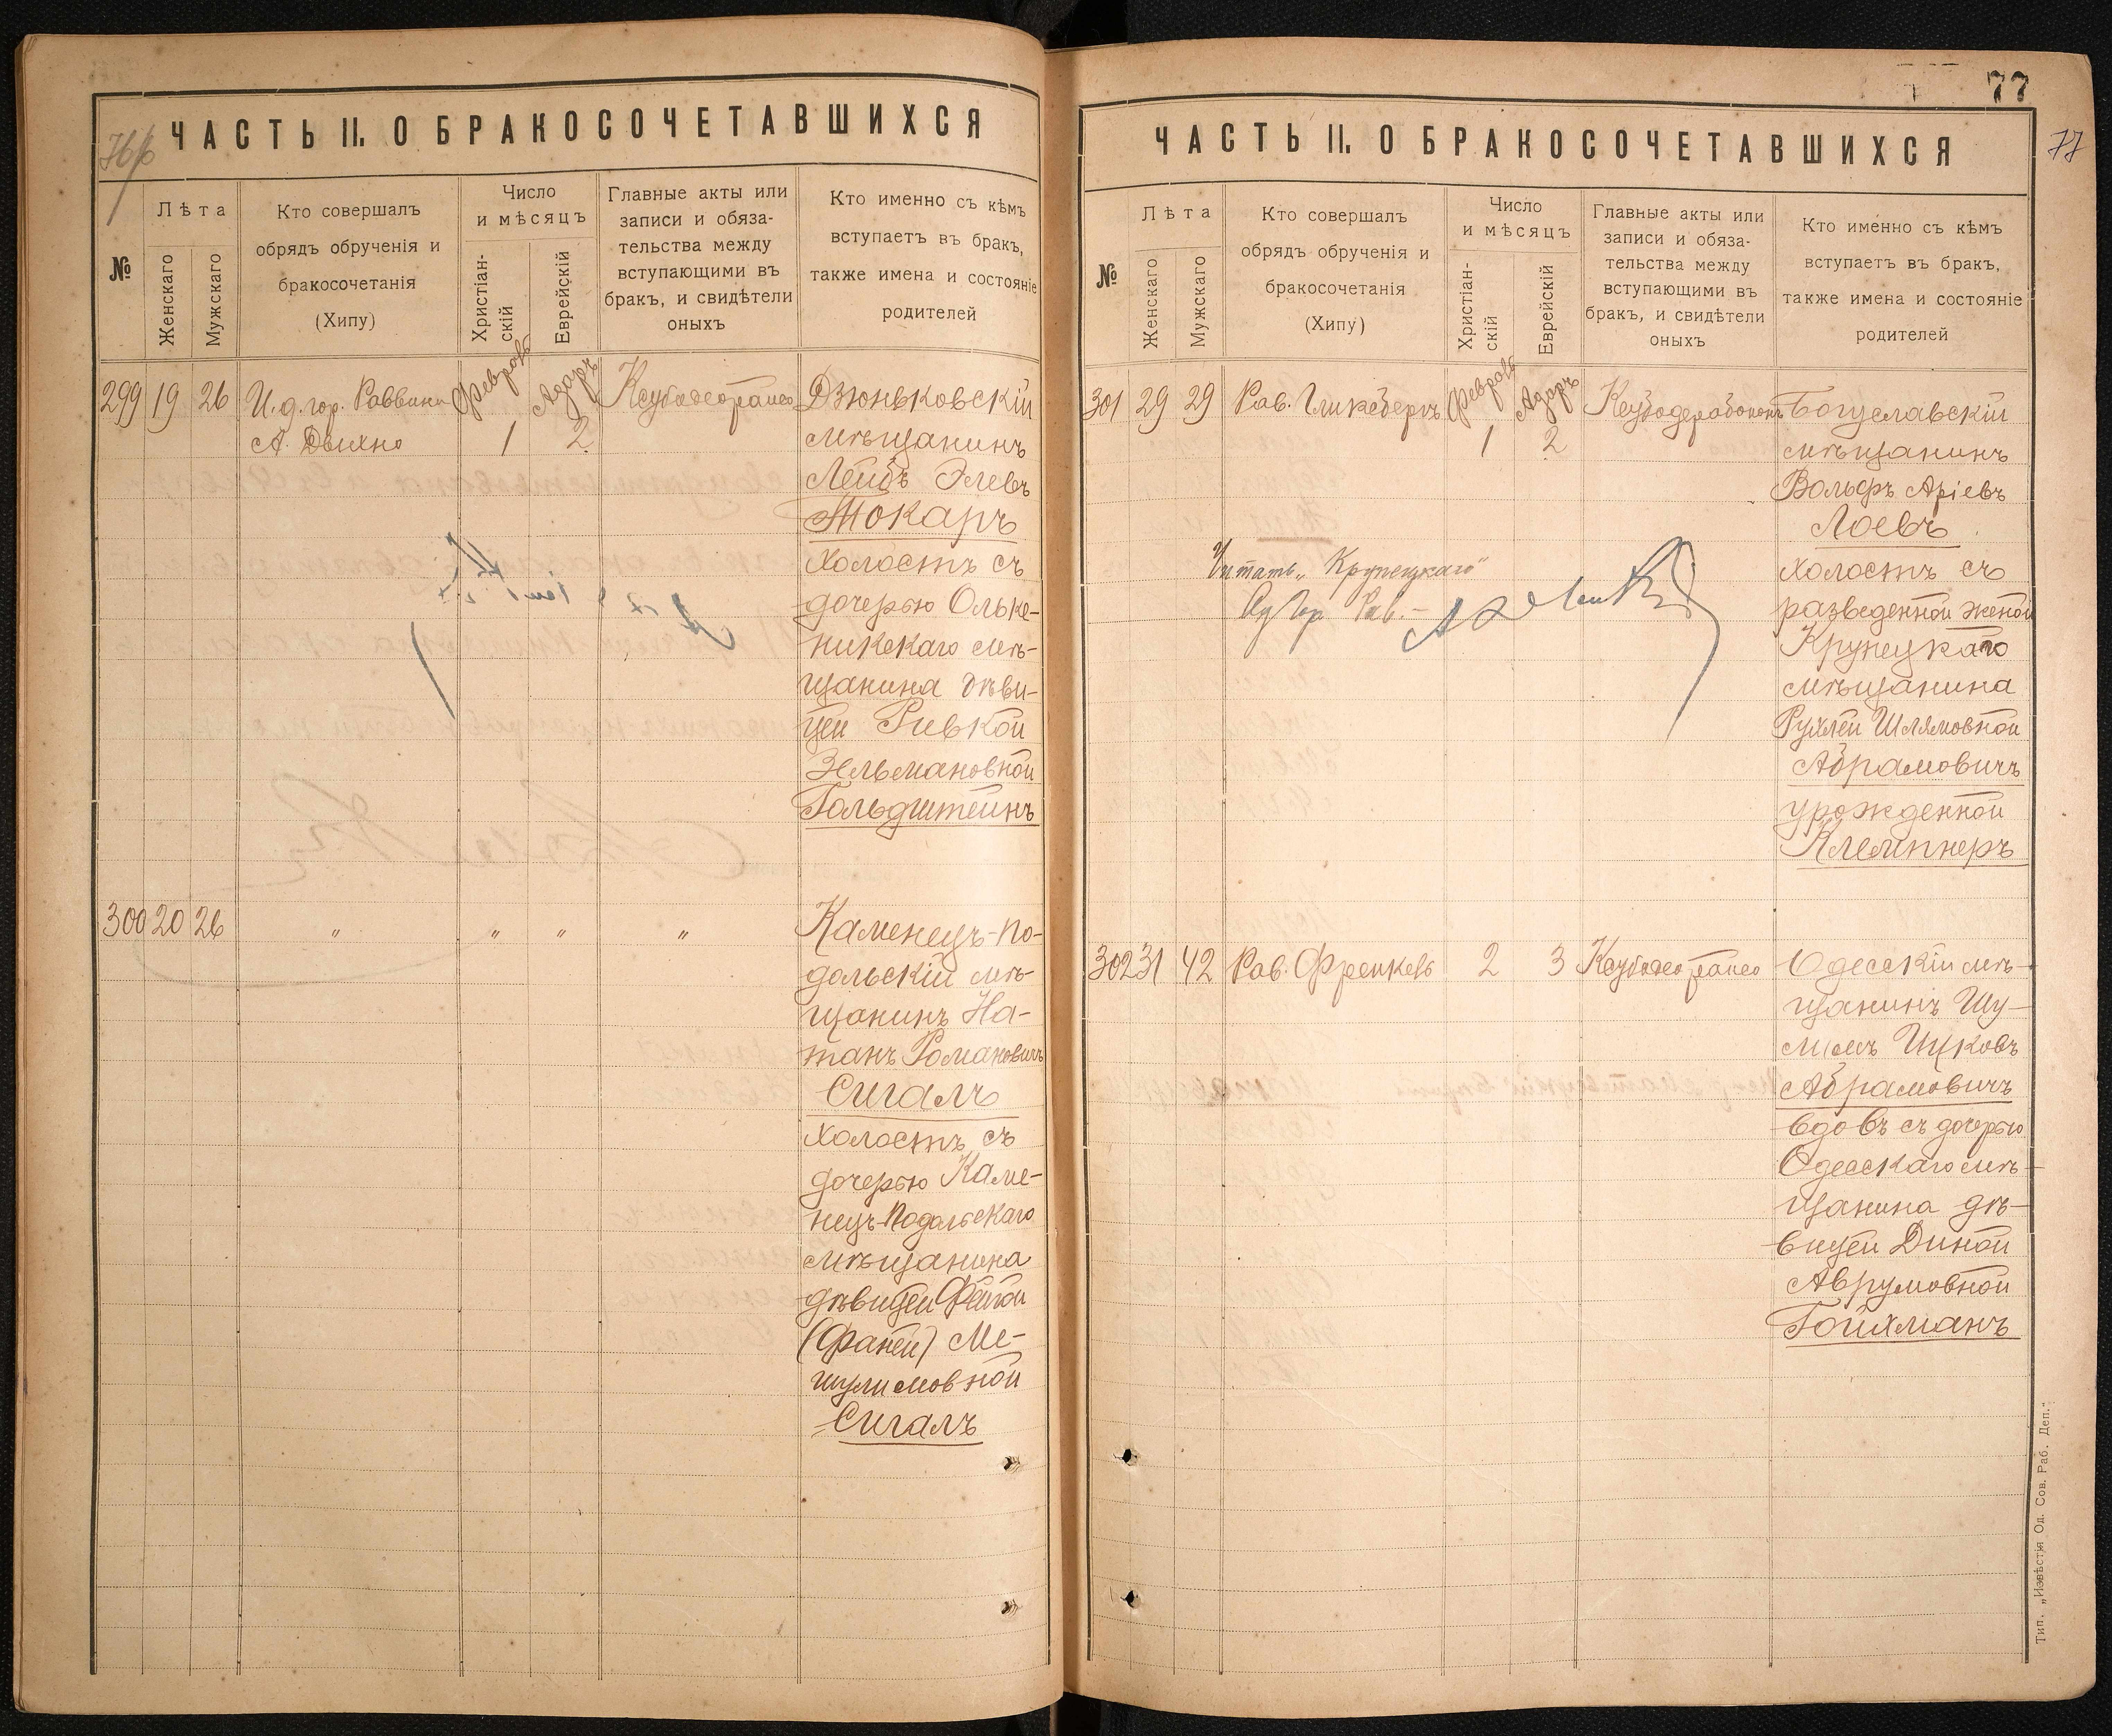 76 об
ЧАСТЬ II. О БРАКОСОЧЕТАВШИХСЯ
№
Лѣта
Женскаго
Мужскаго
Кто совершалъ
обрядъ обрученія и
бракосочетанія
(Хипу)
Число
и мѣсяцъ
Христіан-
скій
Еврейскій
Главные акты или
записи и обяза-
тельства между
вступающими въ
бракъ, и свидѣтели
оныхъ
Кто именно съ кѣмъ
вступаетъ въ бракъ,
также имена и состояніе
родителей
299 19 26 И.д.гор. Раввина Февраль Адаръ
А. Двихно 1 2
Дзюньковскій
мѣщанинъ
Лейбъ Элевъ
Токарь
холостъ съ
дочерью Ольке-
никскаго мѣ-
щанина дѣви-
цей Ривкой
Зельмановной
Гольдштейнъ
300 20 26 " " " "
Каменецъ-По-
дольскій мѣ-
щанинъ На-
танъ Романовичъ
Сигалъ
холостъ съ
дочерью Каме-
нецъ-Подольскаго
мѣщанина
дѣвицей Фейгой
(Фаней) Ме-
шулимовной
Сигалъ
77
77
ЧАСТЬ II. О БРАКОСОЧЕТАВШИХСЯ
№
Лѣта
Женскаго
Мужскаго
Кто совершалъ
обрядъ обрученія и
бракосочетанія
(Хипу)
Число
и мѣсяцъ
Христіан-
скій
Еврейскій
Главные акты или
записи и обяза-
тельства между
вступающими въ
бракъ, и свидѣтели
оныхъ
Кто именно съ кѣмъ
вступаетъ въ бракъ,
также имена и состояніе
родителей
301 29 29 Рав. Гликсбергъ Февраль Адаръ
1 2
Богуславскій
мѣщанинъ
Вольфъ Аріевъ
Лоевъ
холостъ съ
разведенной женой
Крупецкаго
мѣщанина
Рухлей Шлямовной
Абрамовичъ
урожденной
Клемпнеръ
Читать „Крупецкаго"
Гор. Рав.
302 31 42 Рав. Френкель 2 3
Одесскій мѣ-
щанинъ Шу-
лимъ Ицковъ
Абрамовичъ
вдовъ съ дочерью
Одесскаго мѣ-
щанина дѣ-
вицей Диной
Аврумовной
Гойхманъ
Тип. „Извѣстія Од. Сов. Раб. Деп."